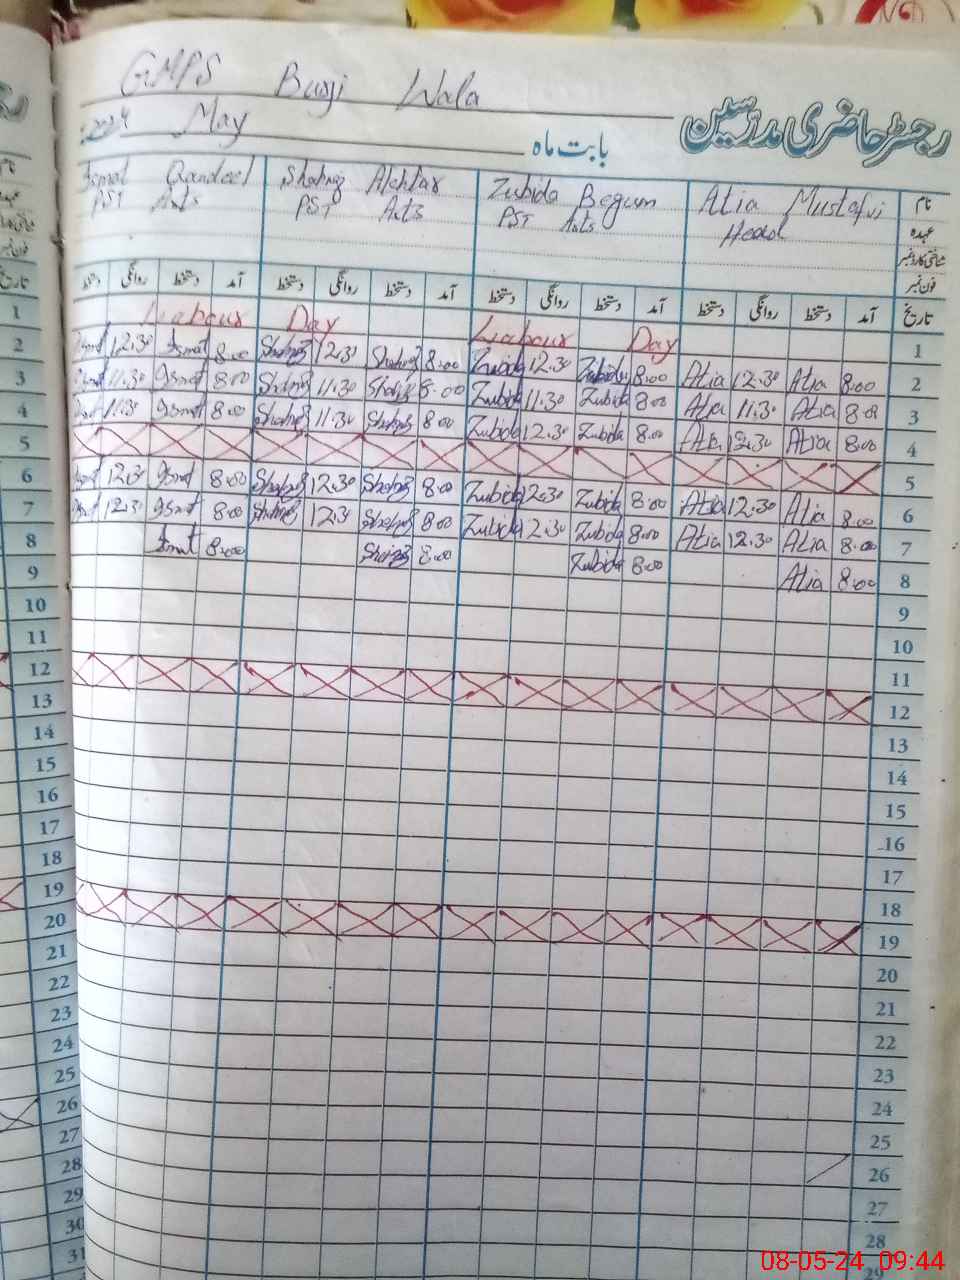 GMPS Busji Wala
رجسٹر حاضری مدرسین
2024 May بابت ماہ
Ismat Qandeel Shahnaz Akhtar Zubida Begum Atia Mustafvi نام
PST Arts PST Arts PST Arts Head عہدہ
شناختی کارڈ نمبر
فون نمبر
دستخط روانگی دستخط آمد دستخط روانگی دستخط آمد دستخط روانگی دستخط آمد دستخط روانگی دستخط آمد تاریخ
1 Labour Day Labour Day 1
2 Ismat 12.30 Ismat 8.00 Shahnaz 12.30 Shahnaz 8.00 Zubida 12.30 Zubida 8.00 Atia 12.30 Atia 8.00 2
3 Ismat 11.30 Ismat 8.00 Shahnaz 11.30 Shahnaz 8.00 Zubida 11.30 Zubida 8.00 Atia 11.30 Atia 8.00 3
4 Ismat 11.30 Ismat 8.00 Shahnaz 11.30 Shahnaz 8.00 Zubida 12.30 Zubida 8.00 Atia 12.30 Atia 8.00 4
5 5
6 Ismat 12.30 Ismat 8.00 Shahnaz 12.30 Shahnaz 8.00 Zubida 12.30 Zubida 8.00 Atia 12.30 Atia 8.00 6
7 Ismat 12.30 Ismat 8.00 Shahnaz 12.3 Shahnaz 8.00 Zubida 12.30 Zubida 8.00 Atia 12.30 Atia 8.00 7
8 Ismat 8.00 Shahnaz 8.00 Zubida 8.00 Atia 8.00 8
9 9
10 10
11 11
12 12
13 13
14 14
15 15
16 16
17 17
18 18
19 19
20 20
21 21
22 22
23 23
24 24
25 25
26 26
27 27
28 28
29 29
30
31
08-05-24 09:44